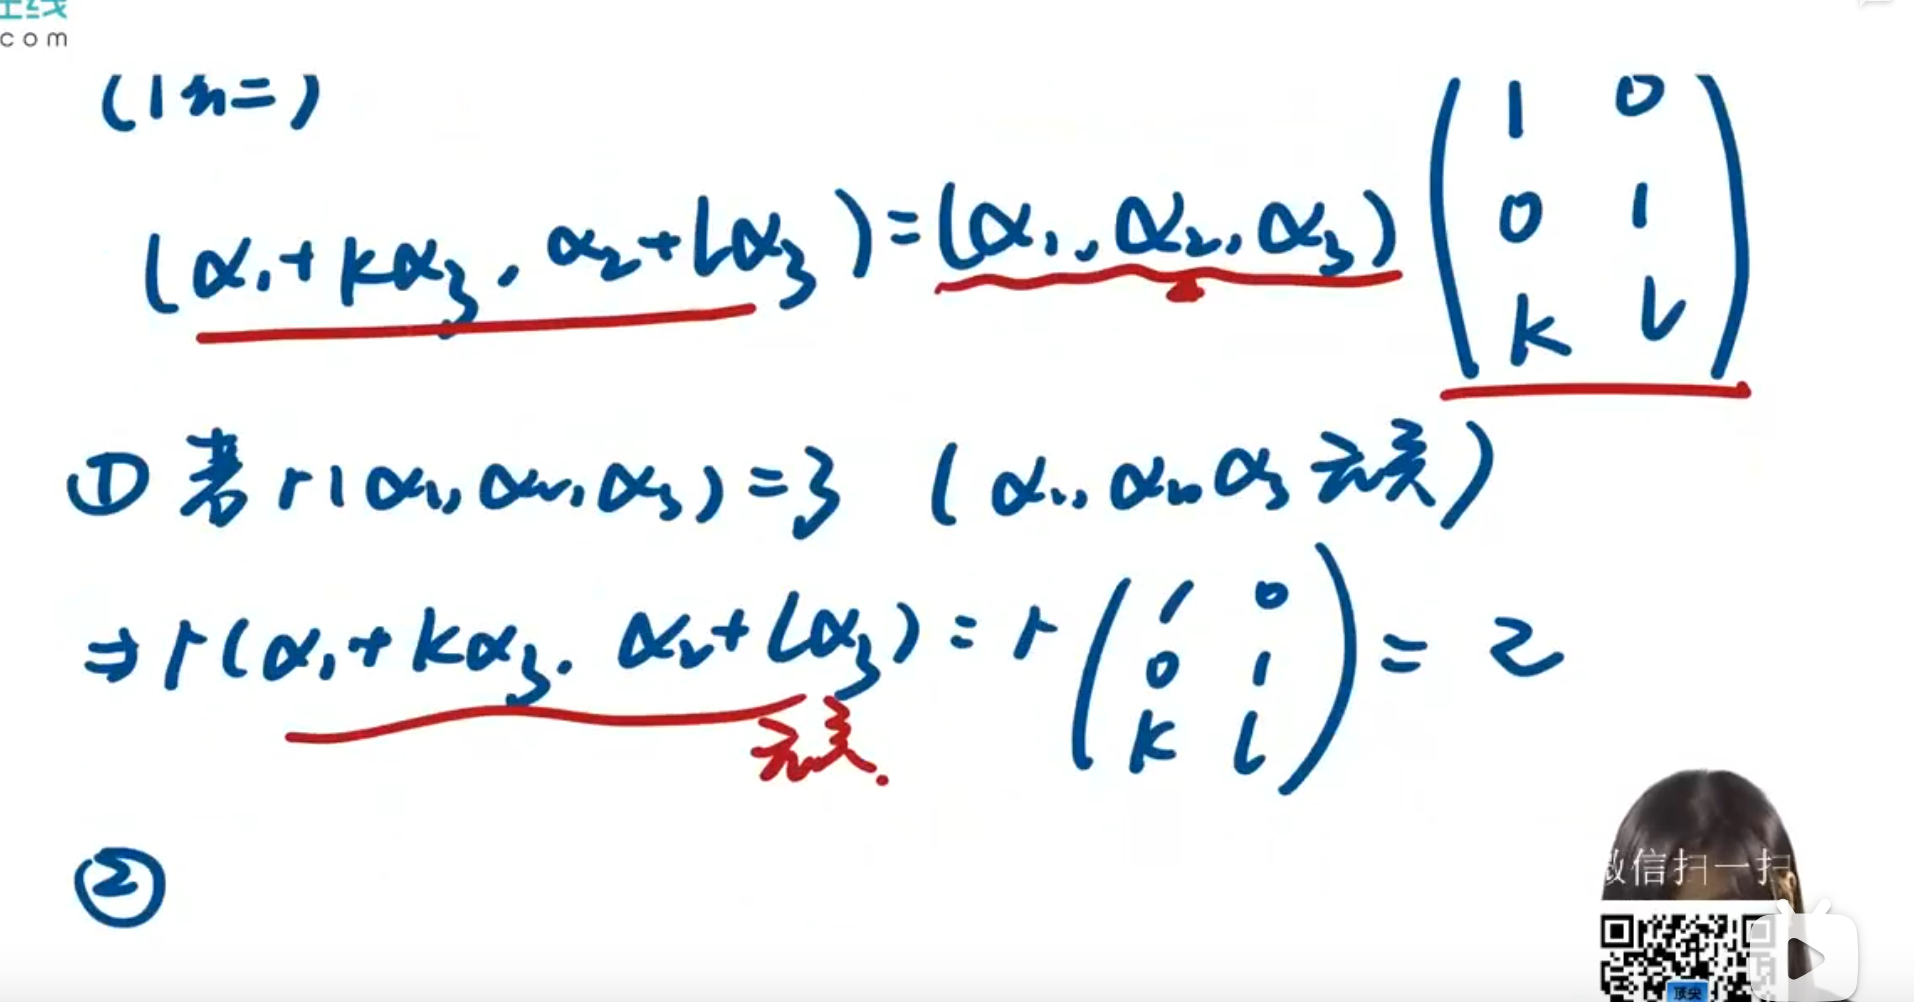 com
(α₁+kα₃, α₂+lα₃)=(α₁, α₂, α₃) (1 0
0 1
k l)
① 若 r(α₁, α₂, α₃)=3 (α₁, α₂, α₃ 无关)
⇒ r(α₁+kα₃, α₂+lα₃) = r (1 0
0 1
k l) = 2
无关.
②
微信扫一扫
顶尖